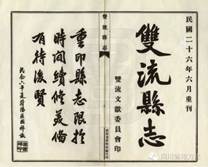 民國二十六年六月重刊
雙流縣志
雙流文獻委員會印
雙流縣志
重印縣志限於
時間續修美備
有待後賢